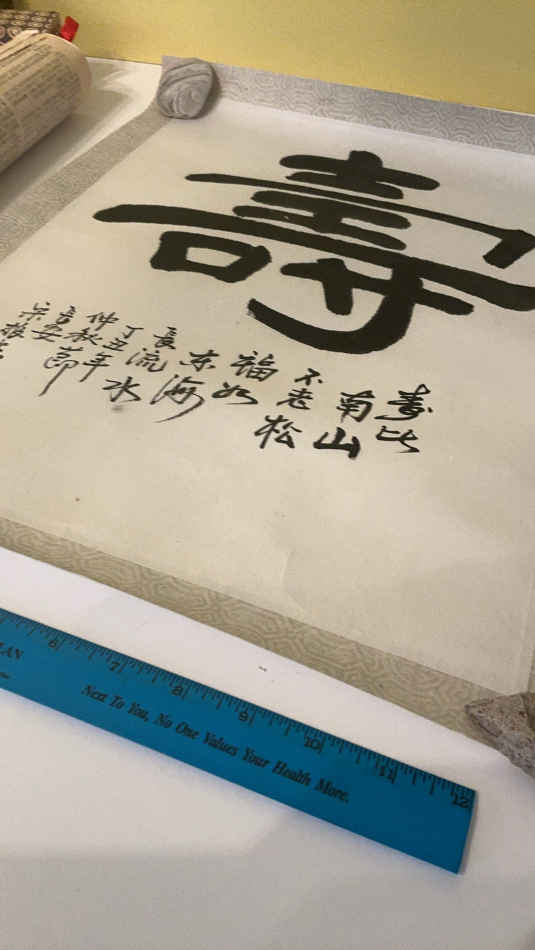 壽
寿比
南山
不老松
福如
东海
長流水
丁丑年
仲秋節
長安
6 7 8 9 10 11 12
Next To You, No One Values Your Health More.